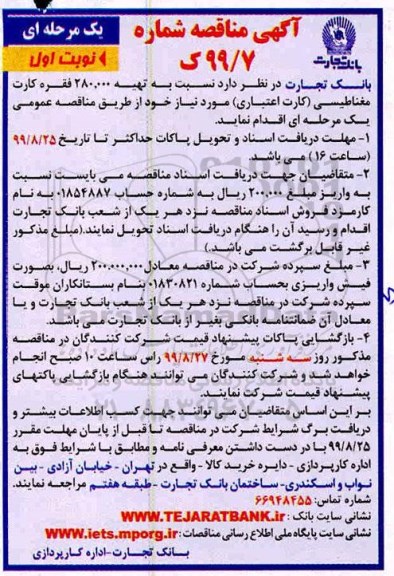 آگهی مناقصه شماره
۹۹/۷ ک
یک مرحله ای
نوبت اول
بانک تجارت
بانک تجارت در نظر دارد نسبت به تهیه ۲۸۰,۰۰۰ فقره کارت
مغناطیسی (کارت اعتباری) مورد نیاز خود از طریق مناقصه عمومی
یک مرحله ای اقدام نماید.
۱- مهلت دریافت اسناد و تحویل پاکات حداکثر تا تاریخ ۹۹/۸/۲۵
(ساعت ۱۶) می باشد.
۲- متقاضیان جهت دریافت اسناد مناقصه می بایست نسبت
به واریز مبلغ ۲۰۰۰۰۰ ریال به شماره حساب ۰۱۸۵۴۸۸۷ به نام
کارمزد فروش اسناد مناقصه نزد هر یک از شعب بانک تجارت
اقدام و رسید آن را هنگام دریافت اسناد تحویل نمایند.(مبلغ مذکور
غیر قابل برگشت می باشد.)
۳- مبلغ سپرده شرکت در مناقصه معادل ۲۰۰,۰۰۰,۰۰۰ ریال، بصورت
فیش واریزی بحساب شماره ۰۱۸۳۰۸۲۱ بنام بستانکاران موقت
سپرده شرکت در مناقصه نزد هر یک از شعب بانک تجارت و یا
معادل آن ضمانتنامه بانکی بغیر از بانک تجارت می باشد.
۴- بازگشایی پاکات پیشنهاد قیمت شرکت کنندگان در مناقصه
مذکور روز سه شنبه مورخ ۹۹/۸/۲۷ راس ساعت ۱۰ صبح انجام
خواهد شد و شرکت کنندگان می توانند هنگام بازگشایی پاکتهای
پیشنهاد قیمت شرکت نمایند.
بر این اساس متقاضیان می توانند جهت کسب اطلاعات بیشتر و
دریافت برگ شرایط شرکت در مناقصه تا قبل از پایان مهلت مقرر
۹۹/۸/۲۵ با در دست داشتن معرفی نامه و مطابق با شرایط فوق به
اداره کارپردازی - دایره خرید کالا - واقع در تهران - خیابان آزادی - بین
نواب و اسکندری- ساختمان بانک تجارت - طبقه هفتم مراجعه نمایند.
شماره تماس: ۶۶۹۴۸۴۵۵
نشانی سایت بانک : WWW.TEJARATBANK.ir
نشانی سایت پایگاه ملی اطلاع رسانی مناقصات : WWW.iets.mporg.ir
بانک تجارت-اداره کارپردازی